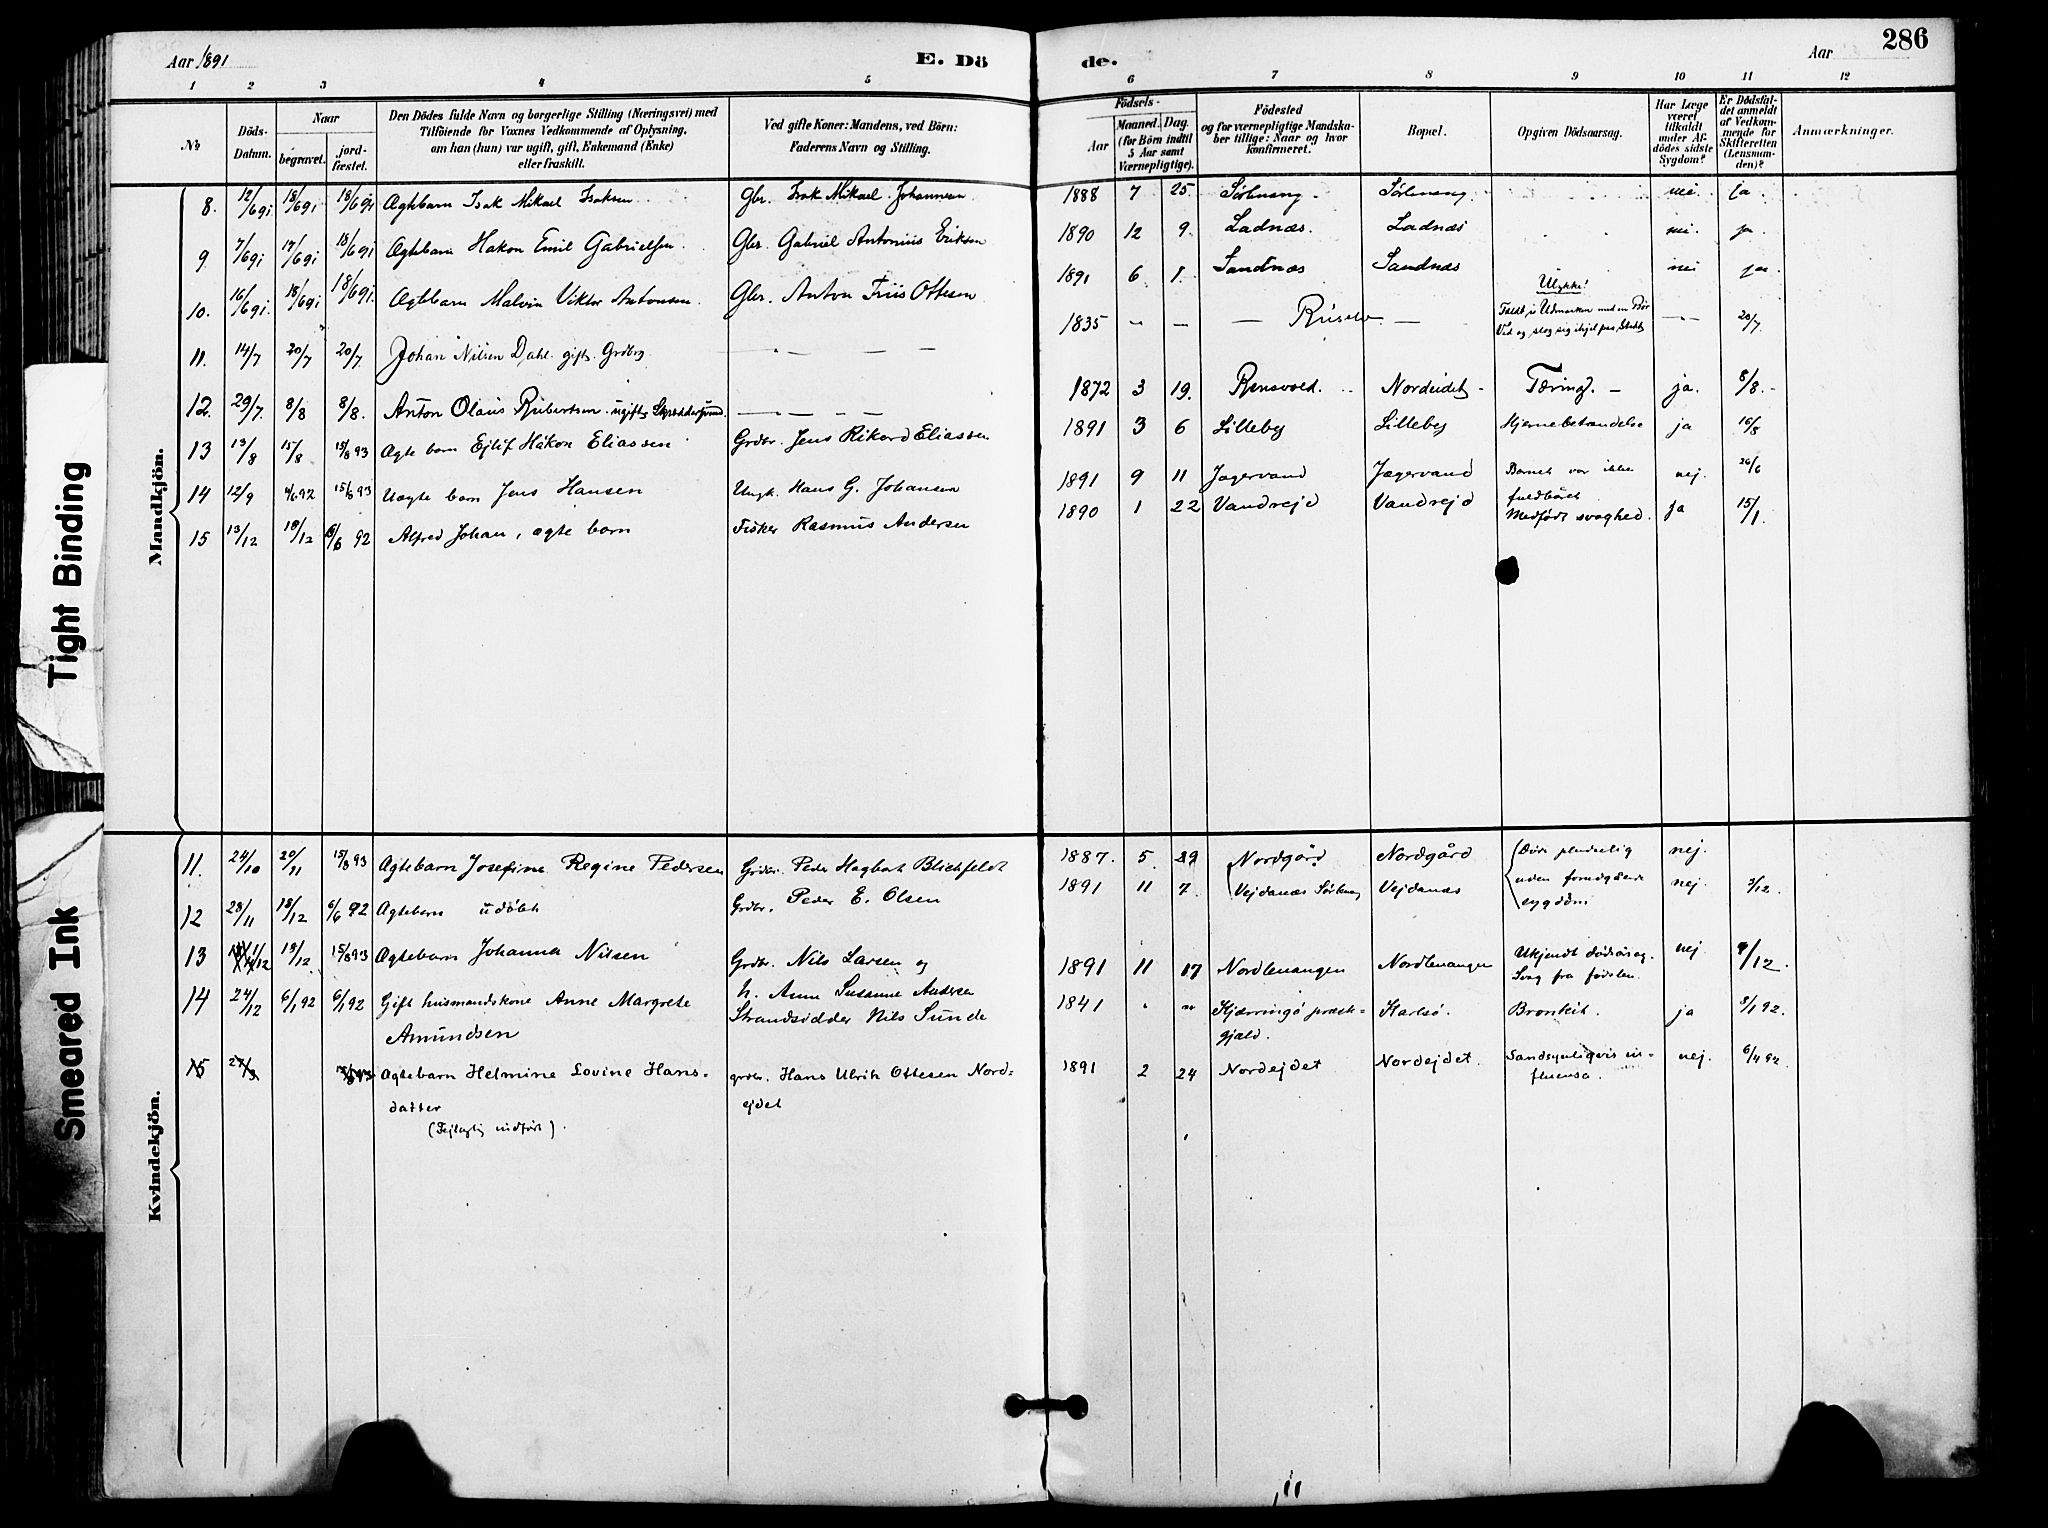 286
Aar 1891
E. Dö
de.
Aar
1 2 3 4 5 6 7 8 9 10 11 12
No
Döds-Datum.
Naar
begravet.
jord-fæstet.
Den Dödes fulde Navn og borgerlige Stilling (Næringsvei) med
Tilföiende for Voxnes Vedkommende af Oplysning,
om han (hun) var ugift, gift, Enkemand (Enke)
eller fraskilt.
Ved gifte Koner: Mandens, ved Börn:
Faderens Navn og Stilling.
Födsels-
Aar
Maaned. Dag.
(for Börn indtil
5 Aar samt
Værnepligtige).
Födested
og for værnepligtige Mandska-
ber tillige: Naar og hvor
konfirmeret.
Bopæl.
Opgiven Dödsaarsag.
Har Læge
været
tilkaldt
under Af-
dödes sidste
Sygdom?
Er Dödsfal-
det anmeldt
af Vedkom-
mende for
Skifteretten
(Lensman-
den)?
Anmærkninger.
Mandkjön.
8. 12/6 91 18/6 91 18/6 91 Ægtebarn Isak Mikael Isaksen Gbr. Isak Mikael Johannesen 1888 7 25 nei. ja.
9 7/6 91 17/6 91 18/6 91 Ægtebarn Hakon Emil Gabrielsen Gbr. Gabriel Antonius Eriksen 1890 12 9 Ladnæs. Ladnæs nei. ja
10. 16/6 91. 18/6 91 18/6 91. Ægtebarn Malvin Viktor Antonsen Gbr. Anton Friis Ottesen 1891 6 1 Sandnæs Sandnæs nei ja
11. 14/7 20/7 20/7 Johan Nilsen Dahl. gift. Grdbrg. — — — 1835 — — — Ulykke!
Faldt i Udmarken med en Bör
Ved og slog sig ihjel paa Stedet — 20/7.
12. 29/7. 8/8 8/8. Anton Olaus Robertsen ugift — — — 1872 3 19. Nordeidet Tæring. — ja. 8/8.
13 13/8 15/8 15/8 93 Ægte barn Ejlif Håkon Eliassen Grdbr. Jens Rikard Eliassen 1891 3 6 Lilleby Lilleby Hjernebetændelse ja 16/8
14 12/9 92 15/8 93 Uægte barn Jens Hansen Ungk. Hans G. Johansen 1891 9 11 Jægervand Jægervand Barnet var ikke
fuldbåret nej. 26/6
15 13/12 18/12 6/6 92 Alfred Johan, ægte barn Fisker Rasmus Andersen 1890 1 22 Vandrejd Vandrejd Medfödt svaghed. ja 15/1.
Kvindekjön.
11. 24/10 20/11 15/8 93 Ægtebarn Josefine Regine Pedersen Grdbr. Peder Hagbart Blichfeldt 1887. 5. 29 Nordgård Nordgård Döde pludselig
uden foregående
sygdom nej.
12 28/11 18/12 6/6 92 Ægtebarn udöbt Grdbr. Peder E. Olsen 1891 11 7 Vejdanæs Vejdanæs nej /12.
13 1/12 19/12 15/8 93 Ægtebarn Johanna Nilsen Grdbr. Nils Larsen og
h. Anne Susanne Andersen 1891 11 17 Nordlenangen Nordlenangen Ukjendt dödsårsag.
Svag fra födslen. nej. /12.
14 24/12 6/1 92 6/1 92 Gift husmandskone Anne Margrete
Amundsen Strandsidder Nils Sunde 1841 " " Kjærringö præste-
gjæld. Karlsö. Bronkit. ja 8/1 92.
15 Ægtebarn Helmine Lovine Hans-
datter
(Fejlagtig indfört). grdbr. Hans Ulrik Ottesen Nord-
ejdet 1891 2 24 Nordejdet Nordejdet. Sandsynligvis in-
fluensa. nej. 6/4 92.
Tight Binding
Smeared Ink